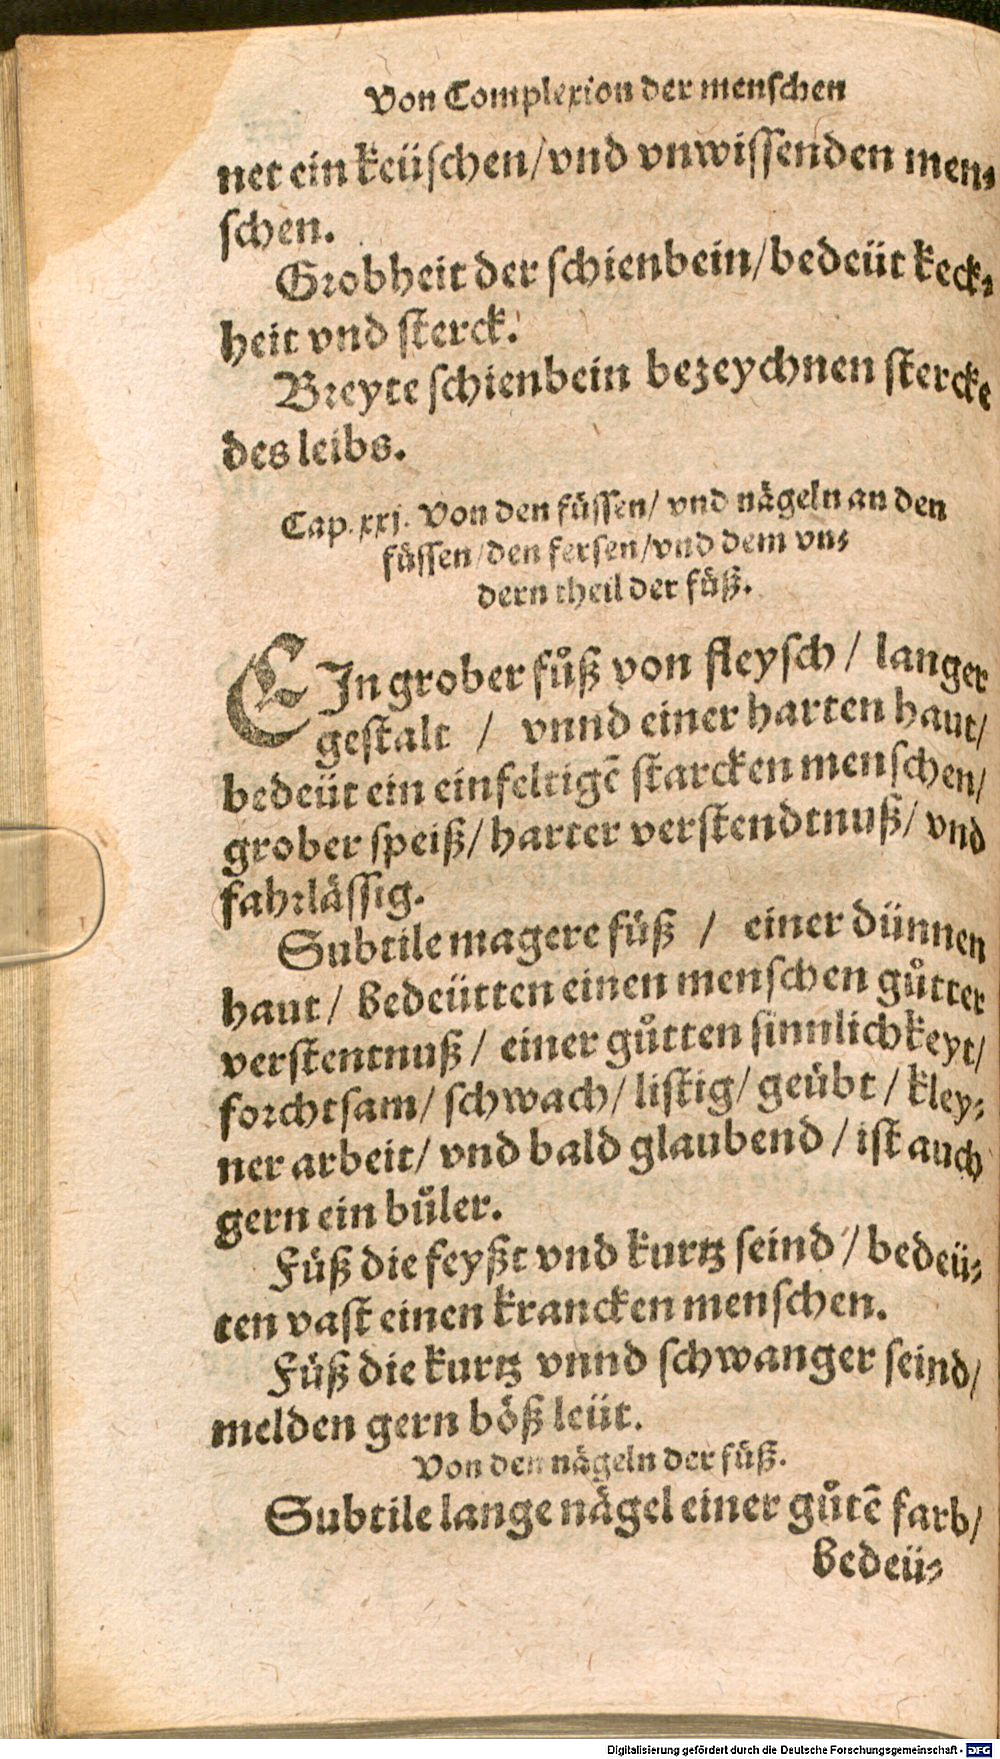 Von Complexion der menschen
net ein keüschen/vnd vnwissenden men⸗
schen.
Grobheit der schienbein/bedeüt keck⸗
heit vnd sterck.
Breyte schienbein bezeychnen stercke
des leibs.
Cap. xxj. Von den füssen/ vnd nägeln an den
füssen/den fersen/vnd dem vn⸗
dern theil der füß.
EIn grober fůß von fleysch / langer
gestalt / vnnd einer harten haut/
bedeüt ein einfeltigē starcken menschen/
grober speiß/ harter verstendtnuß/ vnd
fahrlässig.
Subtile magere füß / einer dünnen
haut/ bedeütten einen menschen gůtter
verstentnuß/ einer gůtten sinnlichkeyt/
forchtsam/ schwach/ listig/ geübt / kley⸗
ner arbeit/ vnd bald glaubend / ist auch
gern ein bůler.
Füß die feyßt vnd kurtz seind / bedeü⸗
ten vast einen krancken menschen.
Füß die kurtz vnnd schwanger seind/
melden gern böß leüt.
Von den nägeln der füß.
Subtile lange nägel einer gůtē farb/
bedeü⸗
Digitalisierung gefördert durch die Deutsche Forschungsgemeinschaft - DFG